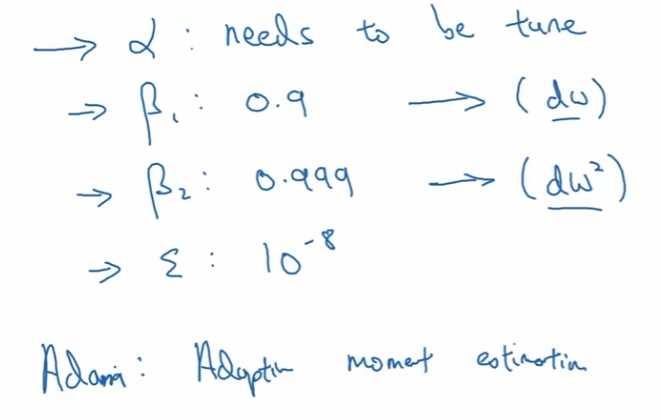 → α : needs to be tune
→ β₁ : 0.9 → (dw)
→ β₂ : 0.999 → (dw²)
→ ε : 10⁻⁸
Adam : Adaptiv moment estimation